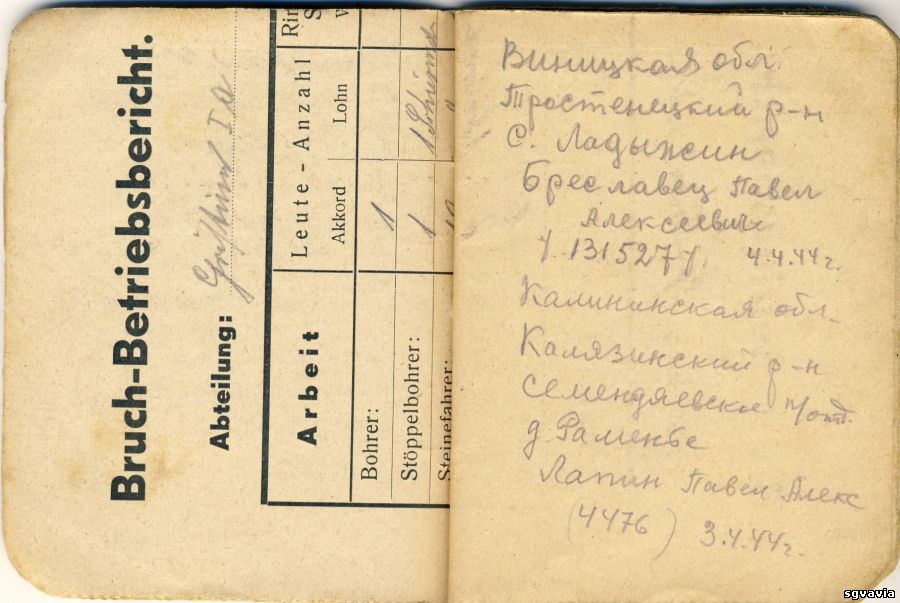 Bruch-Betriebsbericht.
Abteilung:
Arbeit
Leute-Anzahl
Akkord
Lohn
Bohrer:
1
Stöppelbohrer:
1
1
Steinefahrer:
Виницкая обл.
Тростенецкий р-н
С. Ладыжин
Бреславец Павел
Алексеевич
/ 131527 /. 4.4.44г.
Калининская обл.
Калязинский р-н
Семендяевское п/отд.
д. Раменье
Лапин Павел Алекс
(4476) 3.4.44г.
sgvavia